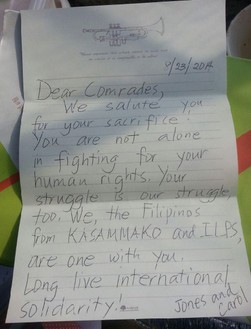 Dear Comrades,
We salute you
for your sacrifice!
You are not alone
in fighting for your
human rights. Your
struggle is our struggle,
too. We, the Filipinos
from KASAMMAKO and ILPS
are one with you.
Long live International
solidarity!
Jones and